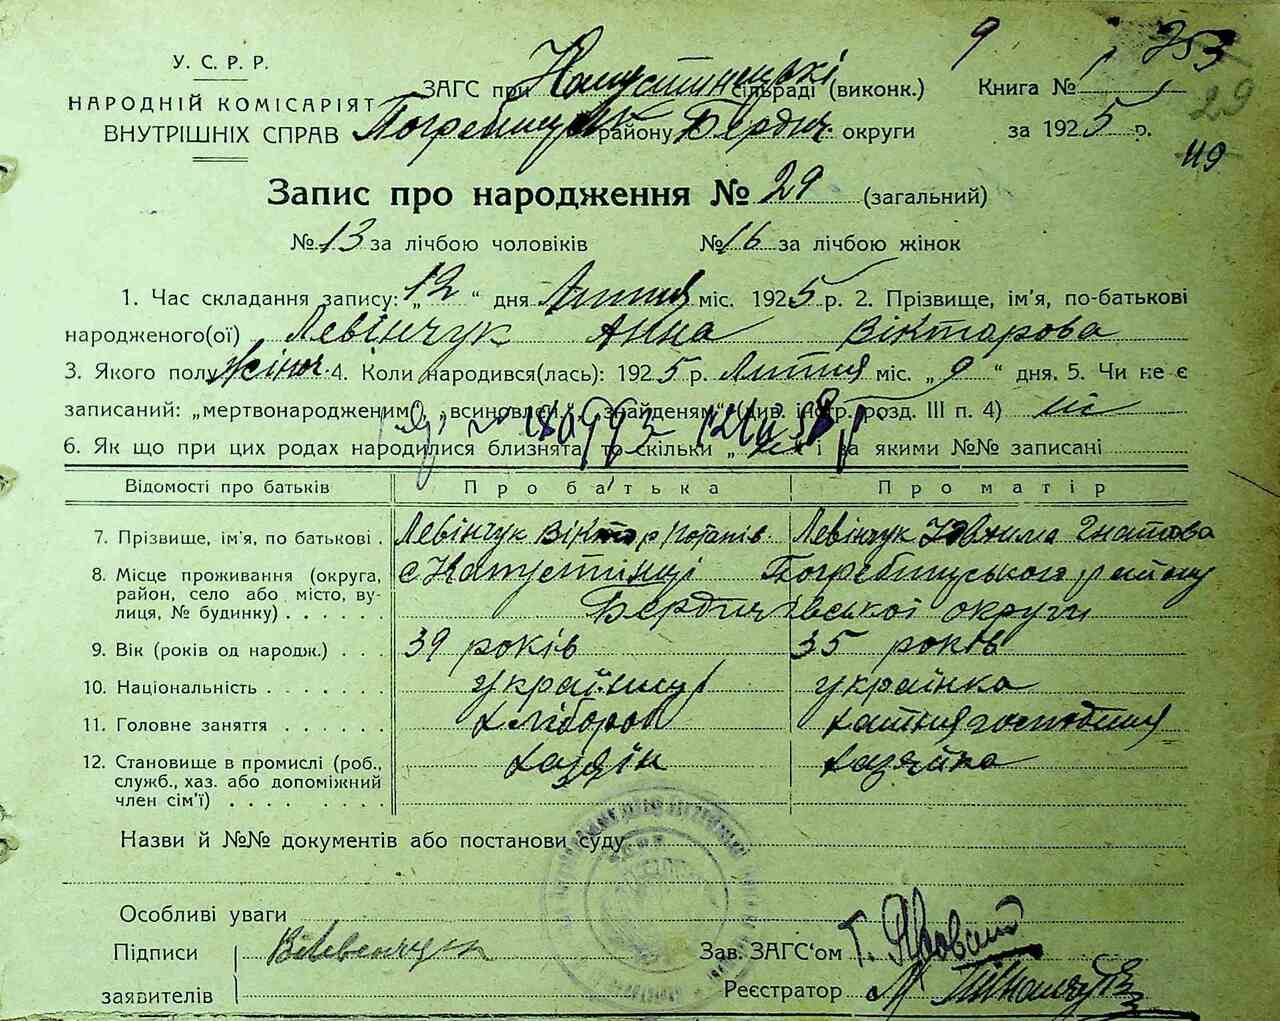 У. С. Р. Р.
НАРОДНІЙ КОМІСАРІЯТ
ВНУТРІШНІХ СПРАВ
ЗАГС при сільраді (виконк.) Книга № 1
Погребищ району Бердич. округи за 1925 р.
9 353
29
49
Запис про народження № 29 (загальний)
№ 13 за лічбою чоловіків № 16 за лічбою жінок
1. Час складання запису: „12“ дня Лютня міс. 1925 р. 2. Прізвище, ім'я, по-батькові
народженого(ої) Левінчук Анна Вікторова
3. Якого полу жіноч. 4. Коли народився(лась): 1925 р. Лютня міс. „9“ дня. 5. Чи не є
записаний: „мертвонародженим“, „всиновлен.“, „знайденям“ (див. інстр. розд. III п. 4) ні
6. Як що при цих родах народилися близнята, то скільки „ “ і за якими №№ записані
Відомості про батьків Про батька Про матір
7. Прізвище, ім'я, по батькові . Левінчук Віктор Левінчук Гнатова
8. Місце проживання (округа, с Капустинці Погребищуського району
район, село або місто, ву-
лиця, № будинку) . . . . . . Бердичівської округи
9. Вік (років од народж.) . . . 39 років 35 років
10. Національність . . . . . . . українець українка
11. Головне заняття . . . . . . хлібороб хатня господиня
12. Становище в промислі (роб., хазяїн хазяйка
служб., хаз. або допоміжний
член сім'ї) . . . . . . . .
Назви й №№ документів або постанови суду
Особливі уваги
Підписи
заявителів
Зав. ЗАГС'ом
Реєстратор